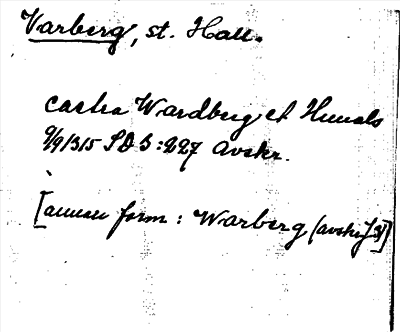 Varberg, st. Hall.
castra Wardberg et Hunals
9/9 1315 SD 3:227 Avskr.
[annan form: Warberg (avskr